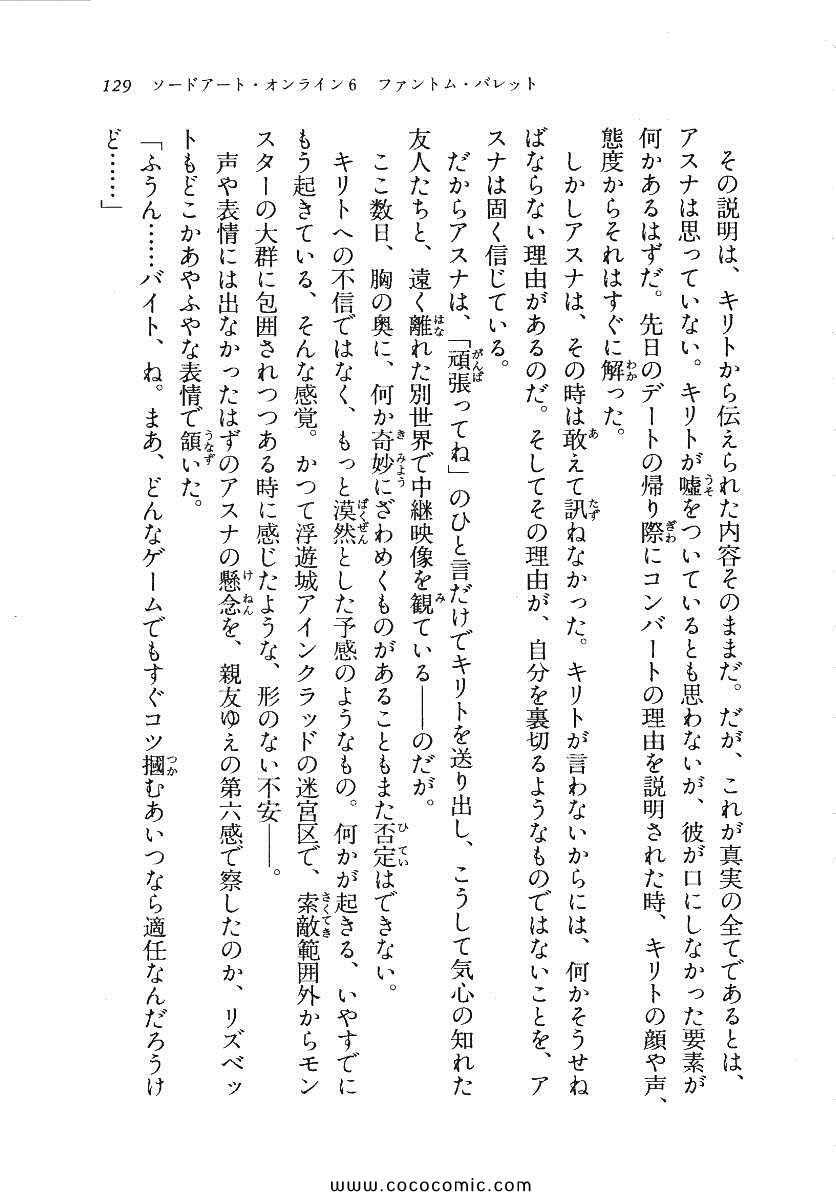 129　ソードアート・オンライン6　ファントム・バレット
　その説明は、キリトから伝えられた内容そのままだ。だが、これが真実の全てであるとは、
アスナは思っていない。キリトが嘘をついているとも思わないが、彼が口にしなかった要素が
何かあるはずだ。先日のデートの帰り際にコンバートの理由を説明された時、キリトの顔や声、
態度からそれはすぐに解った。
　しかしアスナは、その時は敢えて訊ねなかった。キリトが言わないからには、何かそうせね
ばならない理由があるのだ。そしてその理由が、自分を裏切るようなものではないことを、ア
スナは固く信じている。
　だからアスナは、「頑張ってね」のひと言だけでキリトを送り出し、こうして気心の知れた
友人たちと、遠く離れた別世界で中継映像を観ている――のだが。
　ここ数日、胸の奥に、何か奇妙にざわめくものがあることもまた否定はできない。
　キリトへの不信ではなく、もっと漠然とした予感のようなもの。何かが起きる、いやすでに
もう起きている、そんな感覚。かつて浮遊城アインクラッドの迷宮区で、索敵範囲外からモン
スターの大群に包囲されつつある時に感じたような、形のない不安――。
　声や表情には出なかったはずのアスナの懸念を、親友ゆえの第六感で察したのか、リズベッ
トもどこかあやふやな表情で頷いた。
「ふうん……バイト、ね。まあ、どんなゲームでもすぐコツ摑むあいつなら適任なんだろうけ
ど……」
www.cococomic.com